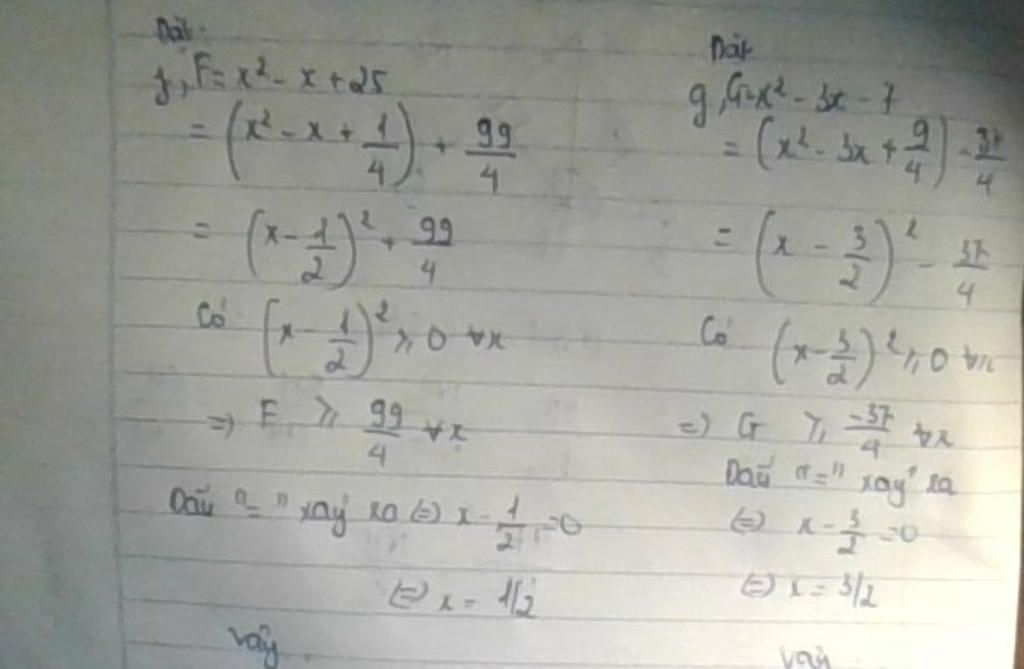 Đặt
f, F = x² - x + 25
= (x² - x + 1/4) + 99/4
= (x - 1/2)² + 99/4
Có (x - 1/2)² ≥ 0 ∀x
=> F ≥ 99/4 ∀x
Dấu "=" xảy ra (=) x - 1/2 = 0
(=) x = 1/2
Vậy
Đặt
g, G = x² - 3x - 7
= (x² - 3x + 9/4) - 37/4
= (x - 3/2)² - 37/4
Có (x - 3/2)² ≥ 0 ∀x
=) G ≥ -37/4 ∀x
Dấu "=" xảy ra
(=) x - 3/2 = 0
(=) x = 3/2
Vậy